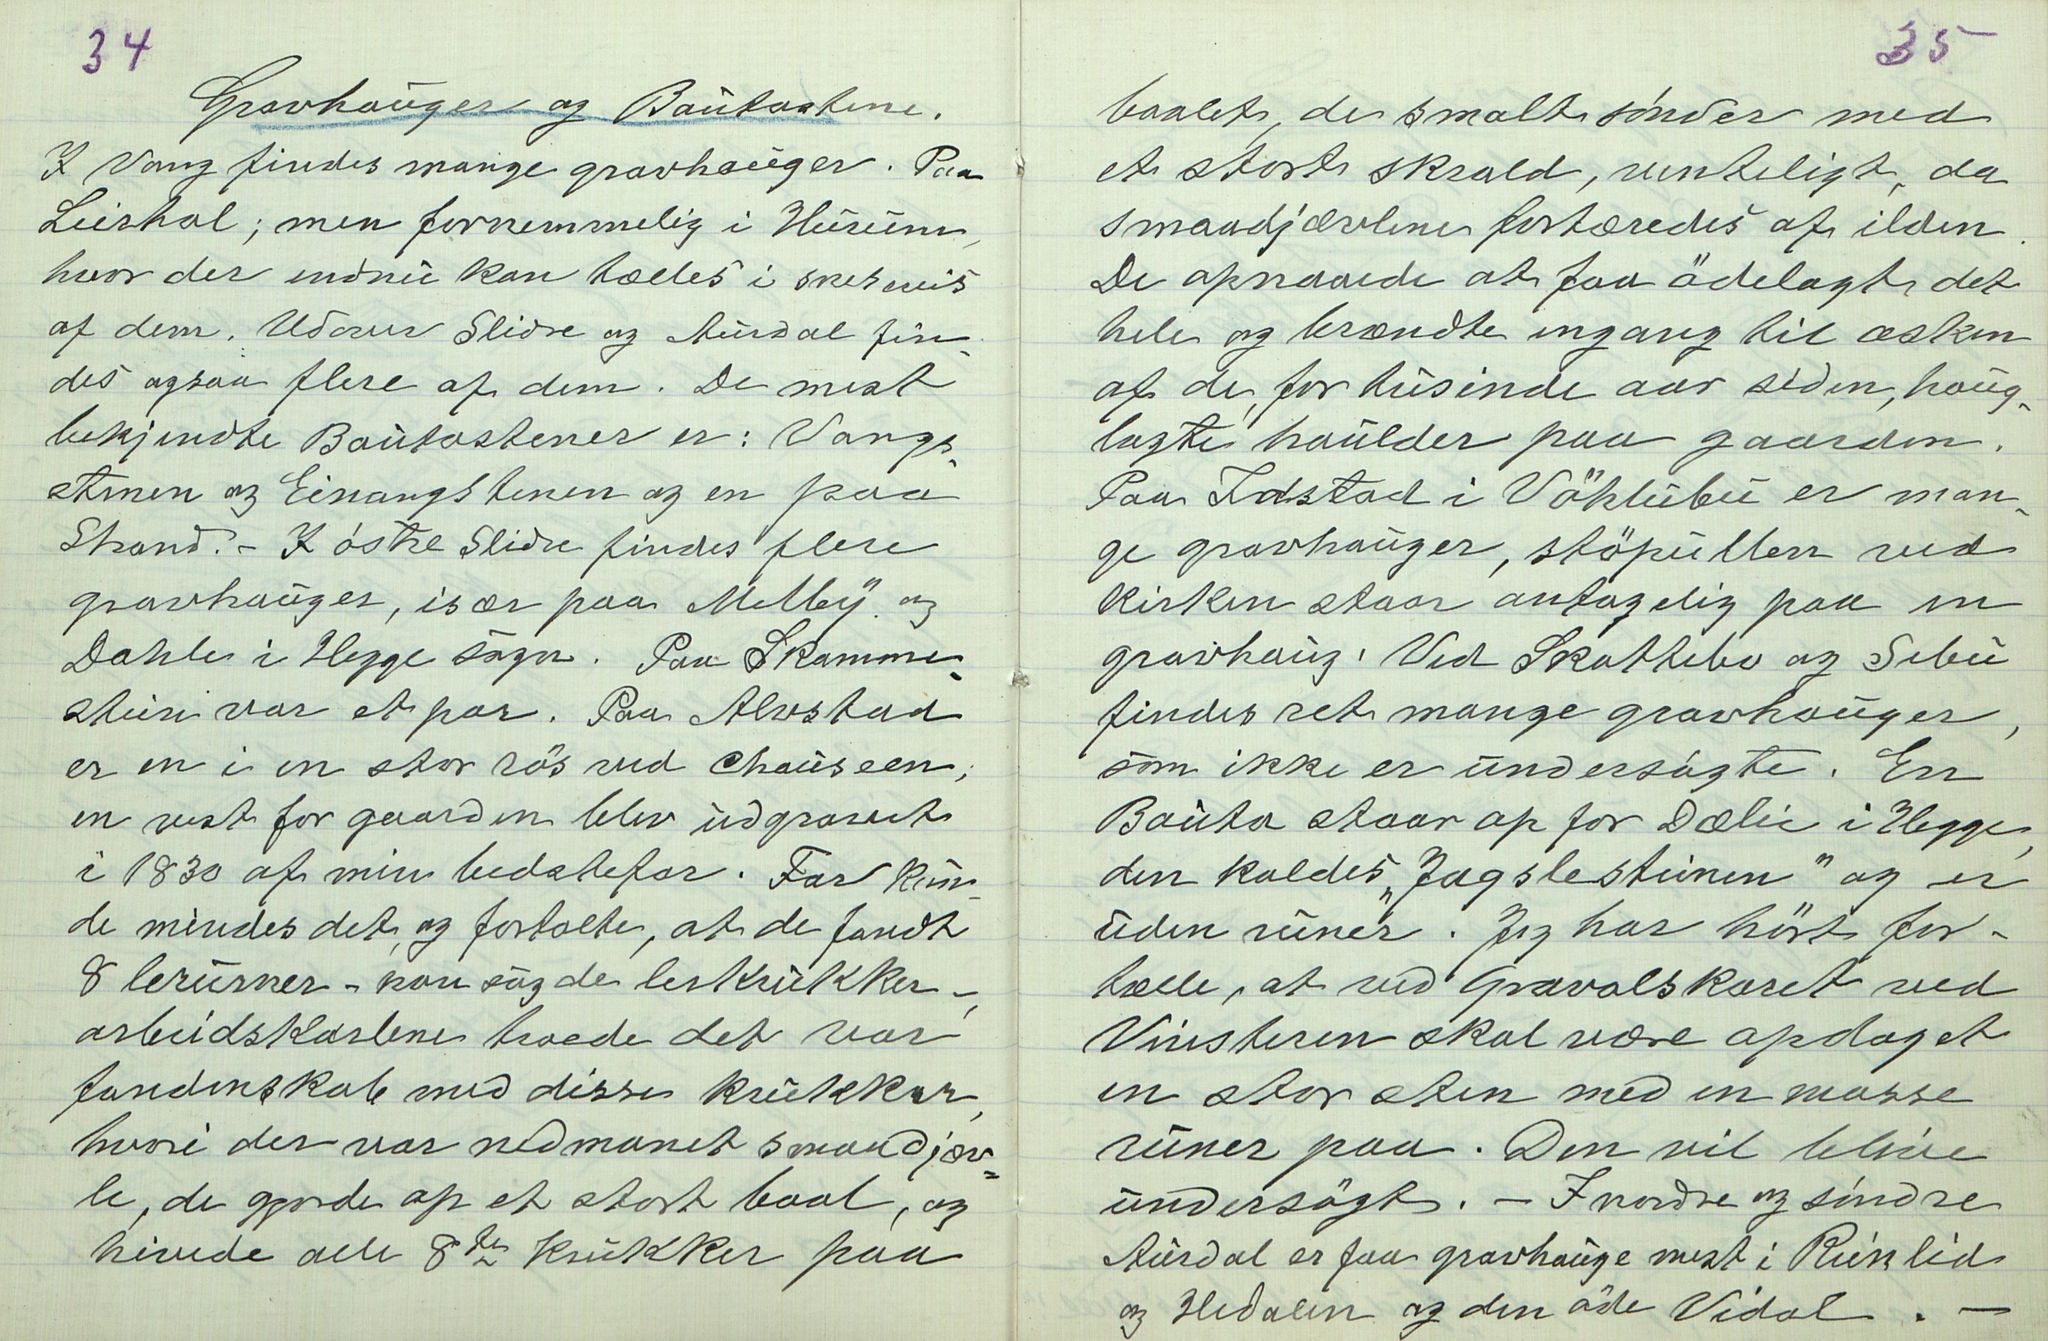 34
Gravhauger og Bautastene.
I Vang findes mange gravhauger. Paa
Leirhol; men fornemmelig i Hurum,
hvor der endnu kan tælles i snesevis
af dem. Udover Slidre og Aurdal fin-
des ogsaa flere af dem. De mest
bekjendte Bautastener er: Vangs-
stenen og Einangstenen og en paa
Strand. - I östre Slidre findes flere
gravhauger, især paa Melby og
Dahle i Hegge sogn. Paa Skamme-
stein var et par. Paa Alvstad
er en i en stor rös ved Chauseen;
en vest for gaarden blev udgravet
i 1830 af min bedstefar. Far kun-
de mindes det, og fortalte, at de fandt
8 lerurner - han sagde lerkrukker -,
arbeidskarlene troede det var
fandenskab med disse krukker,
hvori der var nedmanet smaadjæv=
le, de gjorde op et stort baal, og
hivede alle 8te krukker paa
35
baalet, de smalt sönder med
et stort skrald, venteligt, da
smaadjævlene fortæredes af ilden.
De opnaaede at faa ödelagt det
hele og brændte engang til asken
af de, for tusinde aar siden, haug-
lagte haulder paa gaarden.
Paa Idstad i Vöhlubu er man-
ge gravhauger, stöpullen ved
Kirken staar antagelig paa en
gravhaug. Ved Skattebo og Sebu
findes ret mange gravhauger,
som ikke er undersögte. En
Bauta staar op for Dæli i Hegge,
den kaldes „Jagslesteinen" og er
uden runer. Jeg har hört for-
tælle, at ved Gravolskaret ved
Vinsteren skal være opdaget
en stor sten med en masse
runer paa. Den vil blive
undersögt. - I nordre og söndre
Aurdal er faa gravhauge mest i Ruslid
og Hedalen og den öde Vidal. -